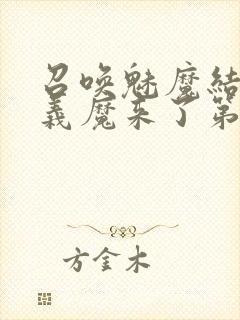 召唤魅魔结
义魔来了第
方金木